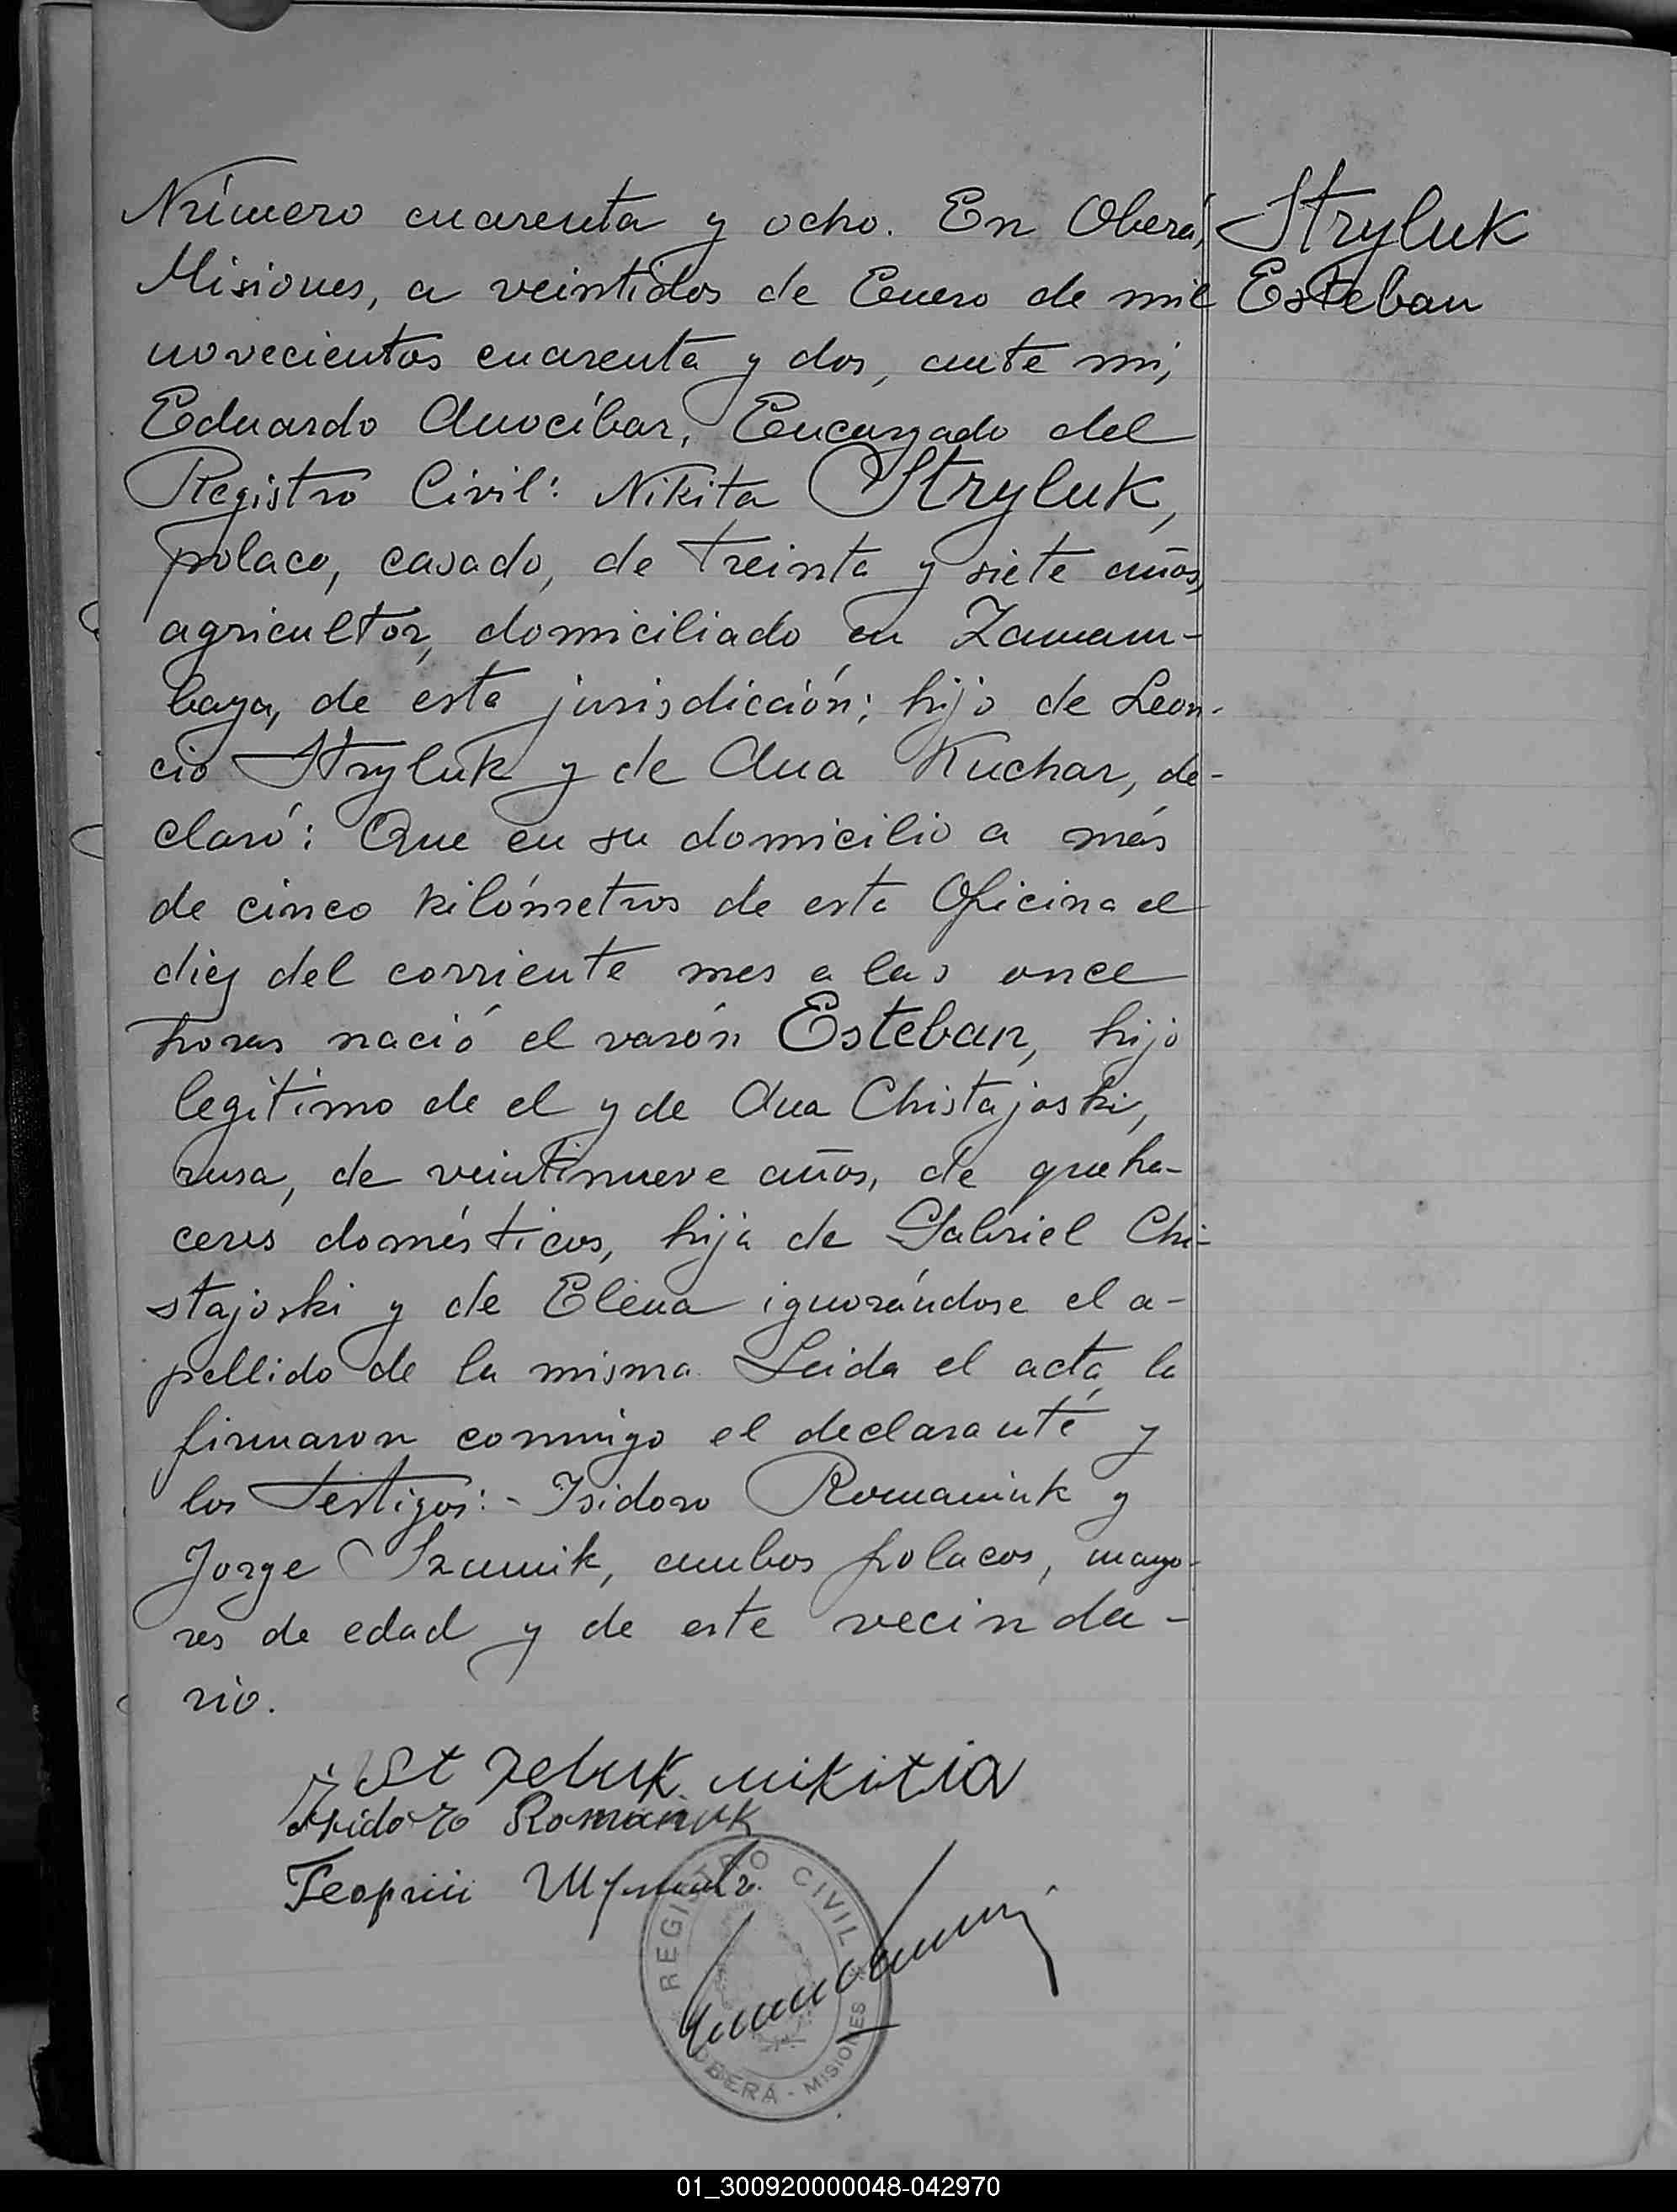 Número cuarenta y ocho. En Oberá,
Misiones, a veintidos de Enero de mil
novecientos cuarenta y dos, ante mi,
Eduardo Anocíbar, Encargado del
Registro Civil: Nikita Stryluk,
polaco, casado, de treinta y siete años,
agricultor, domiciliado en Zamam-
baya, de esta jurisdicción; hijo de Leon-
cio Stryluk y de Ana Kuchar, de-
claró: Que en su domicilio a más
de cinco kilómetros de esta Oficina el
diez del corriente mes a las once
horas nació el varón Esteban, hijo
legítimo de el y de Ana Chistajoski,
rusa, de veintinueve años, de queha-
ceres domésticos, hija de Gabriel Chi-
stajoski y de Elena ignorándose el a-
pellido de la misma. Leida el acta, la
firmaron conmigo el declarante y
los testigos:- Isidoro Romaniuk y
Jorge Szumik, ambos polacos, mayo-
res de edad y de este vecinda-
rio.
Stryluk
Esteban
St zeluk nikitia
Isidoro Romaniuk
REGISTRO CIVIL
OBERÁ - MISIONES
01_300920000048-042970